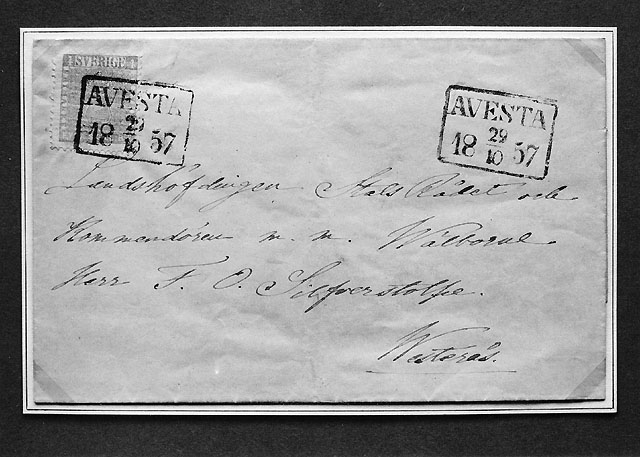 SVERIGE
AVESTA
18 29/10 57
AVESTA
18 29/10 57
Landshöfdingen Stats Rådet och
Kommendören m. m. Wälborne
Herr F. O. Silfverstolpe.
Westerås.